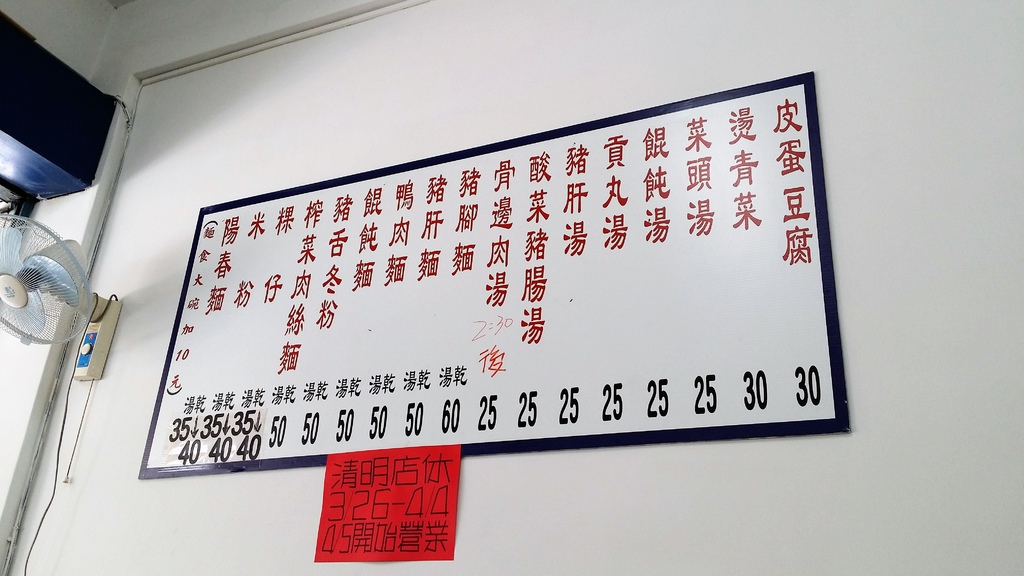 皮蛋豆腐 30
燙青菜 30
菜頭湯 25
餛飩湯 25
貢丸湯 25
豬肝湯 25
酸菜豬腸湯 25
骨邊肉湯 2:30後 25
豬腳麵 湯乾 60
豬肝麵 湯乾 50
鴨肉麵 湯乾 50
餛飩麵 湯乾 50
豬舌冬粉 湯乾 50
榨菜肉絲麵 湯乾 50
粿仔 湯乾 35↓40
米粉 湯乾 35↓40
陽春麵 湯乾 35↓40
(麵食大碗加10元)
清明店休
3/26-4/4
4/5開始營業